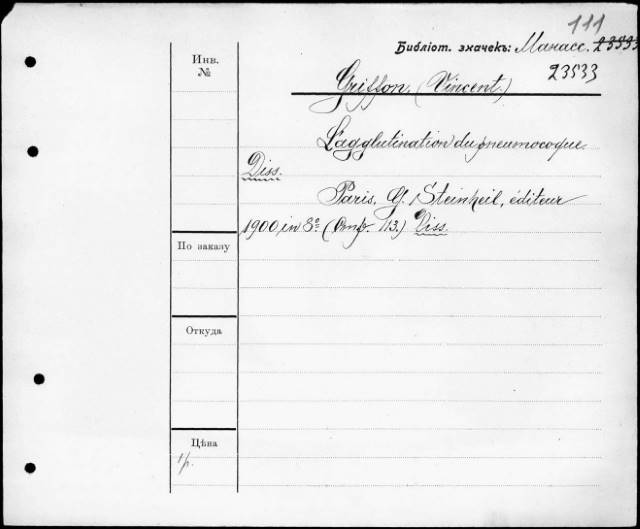 111
Библіот. значекъ: Манасс. 23533
Инв. №
23533
Griffon, (Vincent.)
L'agglutination du pneumocoque.
Diss.
Paris, G. Steinheil, éditeur
1900, in 8º (стр. 113.) Diss.
По заказу
Откуда
Цѣна
1 р.